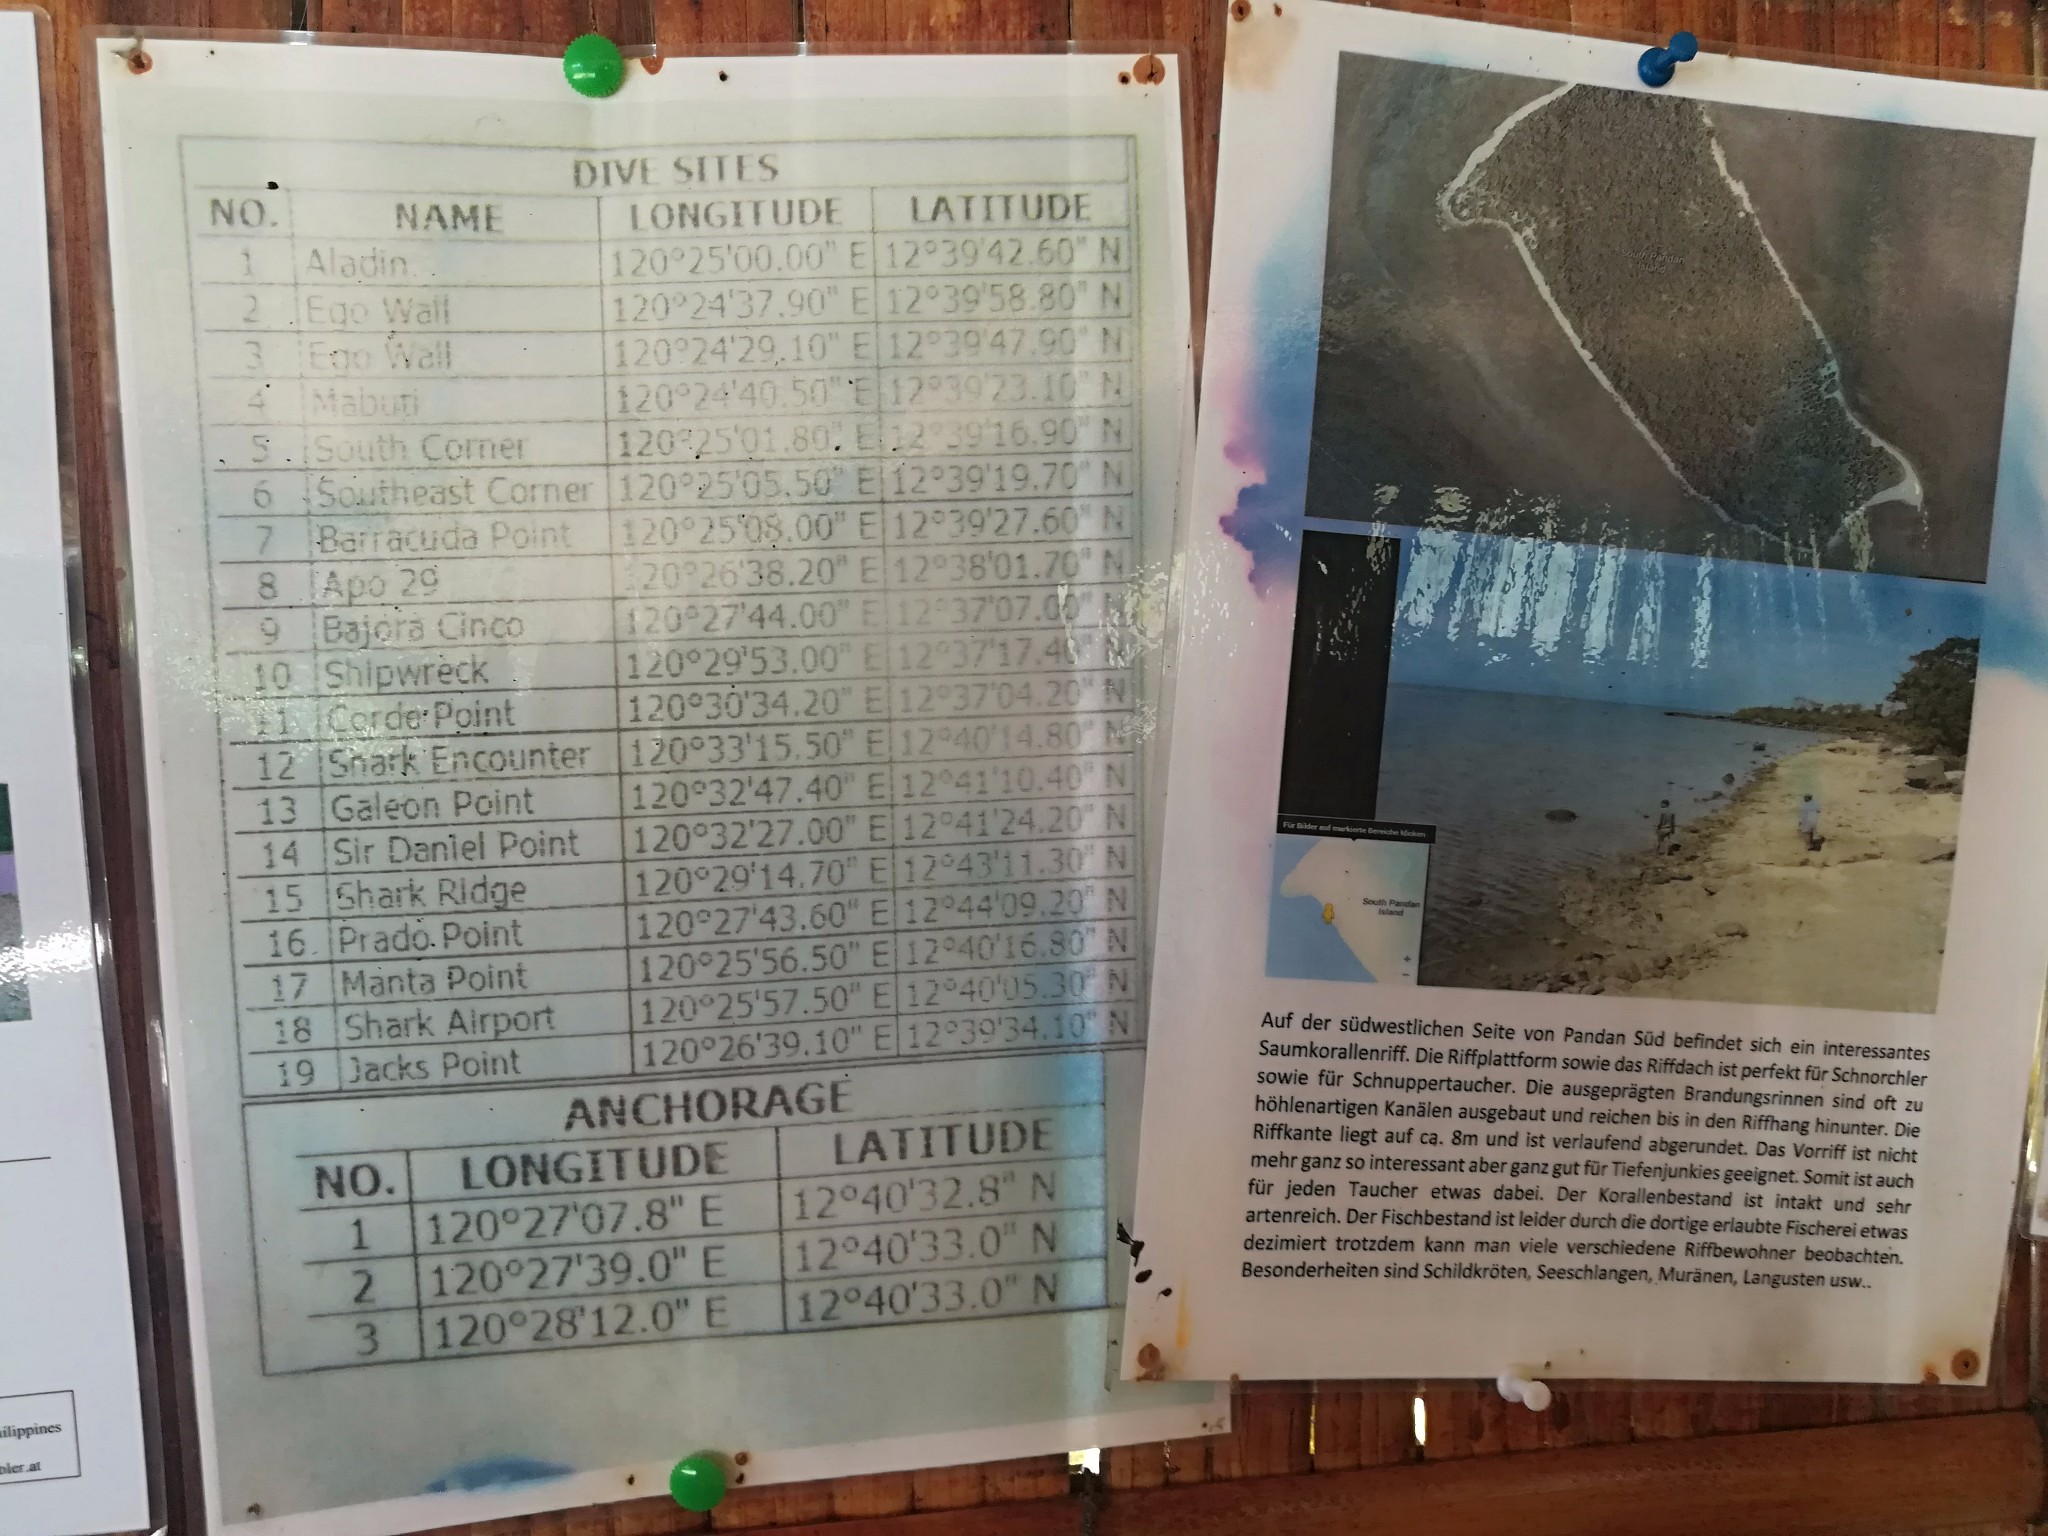 DIVE SITES
NO. NAME LONGITUDE LATITUDE
1 Aladin 120°25'00.00" E 12°39'42.60" N
2 Ego Wall 120°24'37.90" E 12°39'58.80" N
3 Ego Wall 120°24'29.10" E 12°39'47.90" N
4 Mabuti 120°24'40.50" E 12°39'23.10" N
5 South Corner 120°25'01.80" E 12°39'16.90" N
6 Southeast Corner 120°25'05.50" E 12°39'19.70" N
7 Barracuda Point 120°25'08.00" E 12°39'27.60" N
8 Apo 29 120°26'38.20" E 12°38'01.70" N
9 Bajora Cinco 120°27'44.00" E 12°37'07.00" N
10 Shipwreck 120°29'53.00" E 12°37'17.40" N
11 Corde Point 120°30'34.20" E 12°37'04.20" N
12 Shark Encounter 120°33'15.50" E 12°40'14.80" N
13 Galeon Point 120°32'47.40" E 12°41'10.40" N
14 Sir Daniel Point 120°32'27.00" E 12°41'24.20" N
15 Shark Ridge 120°29'14.70" E 12°43'11.30" N
16 Prado Point 120°27'43.60" E 12°44'09.20" N
17 Manta Point 120°25'56.50" E 12°40'16.80" N
18 Shark Airport 120°25'57.50" E 12°40'05.30" N
19 Jacks Point 120°26'39.10" E 12°39'34.10" N
ANCHORAGE
NO. LONGITUDE LATITUDE
1 120°27'07.8" E 12°40'32.8" N
2 120°27'39.0" E 12°40'33.0" N
3 120°28'12.0" E 12°40'33.0" N
South Pandan
Island
Für Bilder auf markierte Bereiche klicken
South Pandan
Island
+
−
Auf der südwestlichen Seite von Pandan Süd befindet sich ein interessantes
Saumkorallenriff. Die Riffplattform sowie das Riffdach ist perfekt für Schnorchler
sowie für Schnuppertaucher. Die ausgeprägten Brandungsrinnen sind oft zu
höhlenartigen Kanälen ausgebaut und reichen bis in den Riffhang hinunter. Die
Riffkante liegt auf ca. 8m und ist verlaufend abgerundet. Das Vorriff ist nicht
mehr ganz so interessant aber ganz gut für Tiefenjunkies geeignet. Somit ist auch
für jeden Taucher etwas dabei. Der Korallenbestand ist intakt und sehr
artenreich. Der Fischbestand ist leider durch die dortige erlaubte Fischerei etwas
dezimiert trotzdem kann man viele verschiedene Riffbewohner beobachten.
Besonderheiten sind Schildkröten, Seeschlangen, Muränen, Langusten usw..